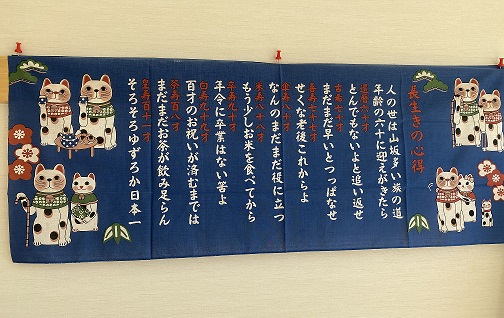 長生きの心得
人の世は山坂多い旅の道
年齢の六十に迎えがきたら
還暦六十才
とんでもないよと追い返せ
古寿七十才
まだまだ早いとつっぱなせ
喜寿七十七才
せくな老後これからよ
傘寿八十才
なんのまだまだ役に立つ
米寿八十八才
もう少しお米を食べてから
卒寿九十才
年令に卒業はない筈よ
白寿九十九才
百才のお祝いが済むまでは
茶寿百八才
まだまだお茶が飲み足らん
皇寿百十一才
そろそろゆずろか日本一